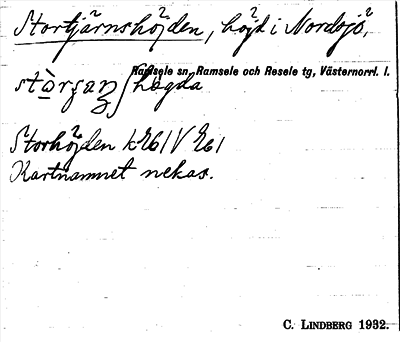 Stortjärnshöjden, höjd i Nordsjö,
Ramsele sn, Ramsele och Resele tg, Västernorrl. l.
Storhöjden
Kartnamnet nekas.
C. LINDBERG 1932.